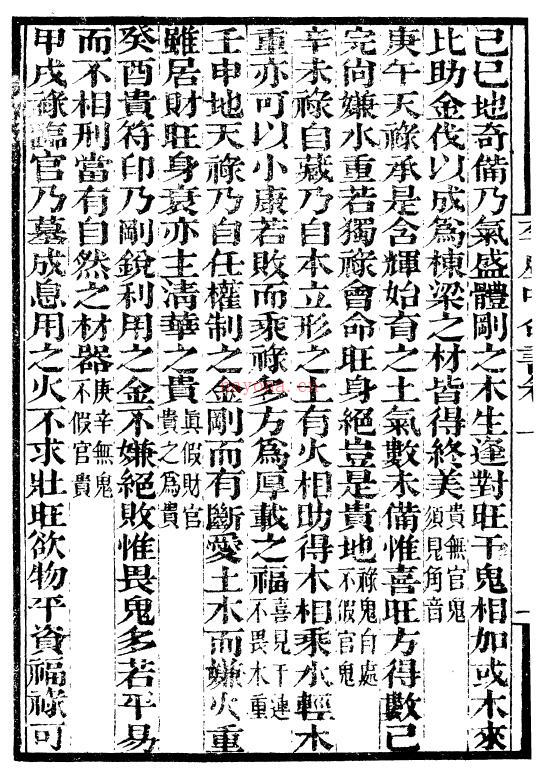 己巳地奇備乃氣盛體剛之木生逢對旺干鬼相加或木來
比助金伐以成爲棟梁之材皆得終美貴無官鬼須見角音
庚午天祿承是含輝始育之土氣數未備惟喜旺方得數已
完尚嫌水重若獨祿會命旺身絕豈是貴地祿鬼自處不假官鬼
辛未祿自藏乃自本立形之土有火相助得木相乘水輕木
重亦可以小康若敗而乘祿多方爲厚載之福喜見干連不畏木重
壬申地天祿乃自任權制之金剛而有斷愛土水而嫌火重
雖居財旺身衰亦主清華之貴眞假財官貴之爲貴
癸酉貴符印乃剛銳利用之金不嫌絕敗惟畏鬼多若平易
而不相刑當有自然之材器庚辛無鬼不假官貴
甲戌祿臨官乃墓成息用之火不求壯旺欲物平資福祿可